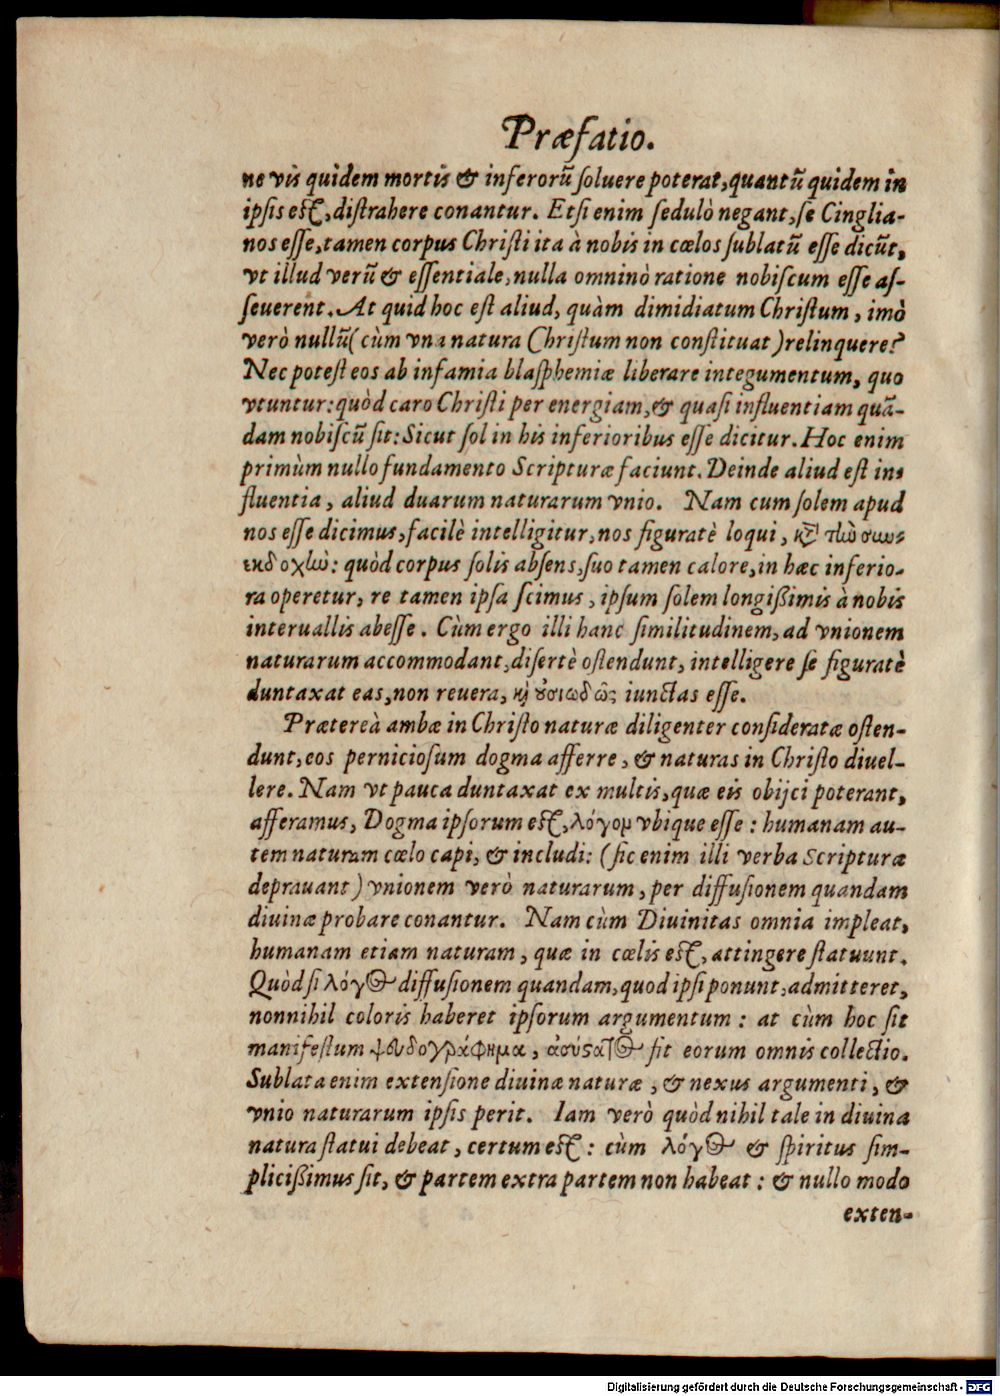 Præfatio.
ne vis quidem mortis & inferorũ soluere poterat, quantũ quidem in
ipsis est, distrahere conantur. Etsi enim sedulò negant, se Cinglia-
nos esse, tamen corpus Christi ita à nobis in cœlos sublatũ esse dicũt,
vt illud verũ & essentiale, nulla omninò ratione nobiscum esse as-
seuerent. At quid hoc est aliud, quàm dimidiatum Christum, imò
verò nullũ (cùm vna natura Christum non constituat) relinquere?
Nec potest eos ab infamia blasphemiæ liberare integumentum, quo
vtuntur: quòd caro Christi per energiam, & quasi influentiam quã-
dam nobiscũ sit: Sicut sol in his inferioribus esse dicitur. Hoc enim
primùm nullo fundamento Scripturæ faciunt. Deinde aliud est in-
fluentia, aliud duarum naturarum vnio. Nam cum solem apud
nos esse dicimus, facilè intelligitur, nos figuratè loqui, κτ̀ τἠὼ σιωε-
εκδοχἰω: quòd corpus solis absens, suo tamen calore, in hæc inferio-
ra operetur, re tamen ipsa scimus, ipsum solem longißimis à nobis
interuallis abesse. Cùm ergo illi hanc similitudinem, ad vnionem
naturarum accommodant, disertè ostendunt, intelligere se figuratè
duntaxat eas, non reuera, κὶ ȣσιωδῶς iunctas esse.
Prætereà ambæ in Christo naturæ diligenter consideratæ osten-
dunt, eos perniciosum dogma afferre, & naturas in Christo diuel-
lere. Nam vt pauca duntaxat ex multis, quæ eis obijci poterant,
afferamus, Dogma ipsorum est, λόγομ vbique esse: humanam au-
tem naturam cœlo capi, & includi: (sic enim illi verba Scripturæ
deprauant) vnionem verò naturarum, per diffusionem quandam
diuinæ probare conantur. Nam cùm Diuinitas omnia impleat,
humanam etiam naturam, quæ in cœlis est, attingere statuunt.
Quòd si λόγος diffusionem quandam, quod ipsi ponunt, admitteret,
nonnihil coloris haberet ipsorum argumentum: at cùm hoc sit
manifestum ψευδογράφημα, ἀσύςατος sit eorum omnis collectio.
Sublata enim extensione diuinæ naturæ, & nexus argumenti, &
vnio naturarum ipsis perit. Iam verò quòd nihil tale in diuina
natura statui debeat, certum est: cùm λόγος & spiritus sim-
plicißimus sit, & partem extra partem non habeat: & nullo modo
exten-
Digitalisierung gefördert durch die Deutsche Forschungsgemeinschaft - DFG